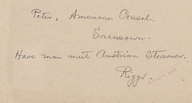 Peter, American Consul.
Have man meet Austrian Steamer.
Riggs.